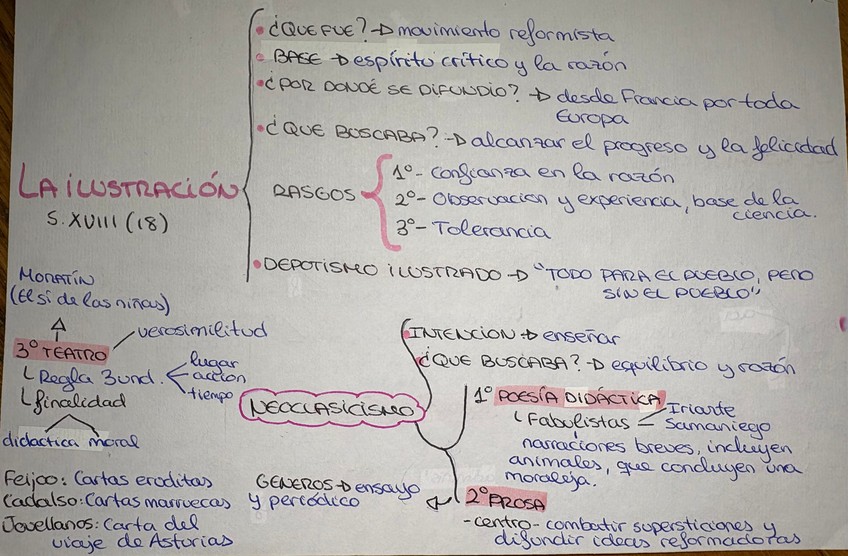 LA ILUSTRACIÓN
S. XVIII (18)
• ¿QUE FUE? → movimiento reformista
• BASE → espíritu crítico y la razón
• ¿POR DONDÉ SE DIFUNDIO? → desde Francia por toda
Europa
• ¿QUE BUSCABA? → alcanzar el progreso y la felicidad
RASGOS
1º- Confianza en la razón
2º- Observacion y experiencia, base de la
ciencia.
3º- Tolerancia
• DEPOTISMO ILUSTRADO → "TODO PARA EL PUEBLO, PERO
SIN EL PUEBLO"
NEOCLASICISMO
INTENCION → enseñar
¿QUE BUSCABA? → equilibrio y razón
1º POESÍA DIDÁCTICA
Fabulistas
Iriarte
Samaniego
narraciones breves, incluyen
animales, que concluyen una
moraleja.
2º PROSA
- centro - combatir supersticiones y
difundir ideas reformadoras
GENEROS → ensayo
y periódico
Feijoo: Cartas eroditas
Cadalso: Cartas marruecas
Jovellanos: Carta del
viaje de Asturias
3º TEATRO
verosimilitud
Regla 3 und.
lugar
acción
tiempo
finalidad
didactica moral
MORATÍN
(El sí de las niñas)